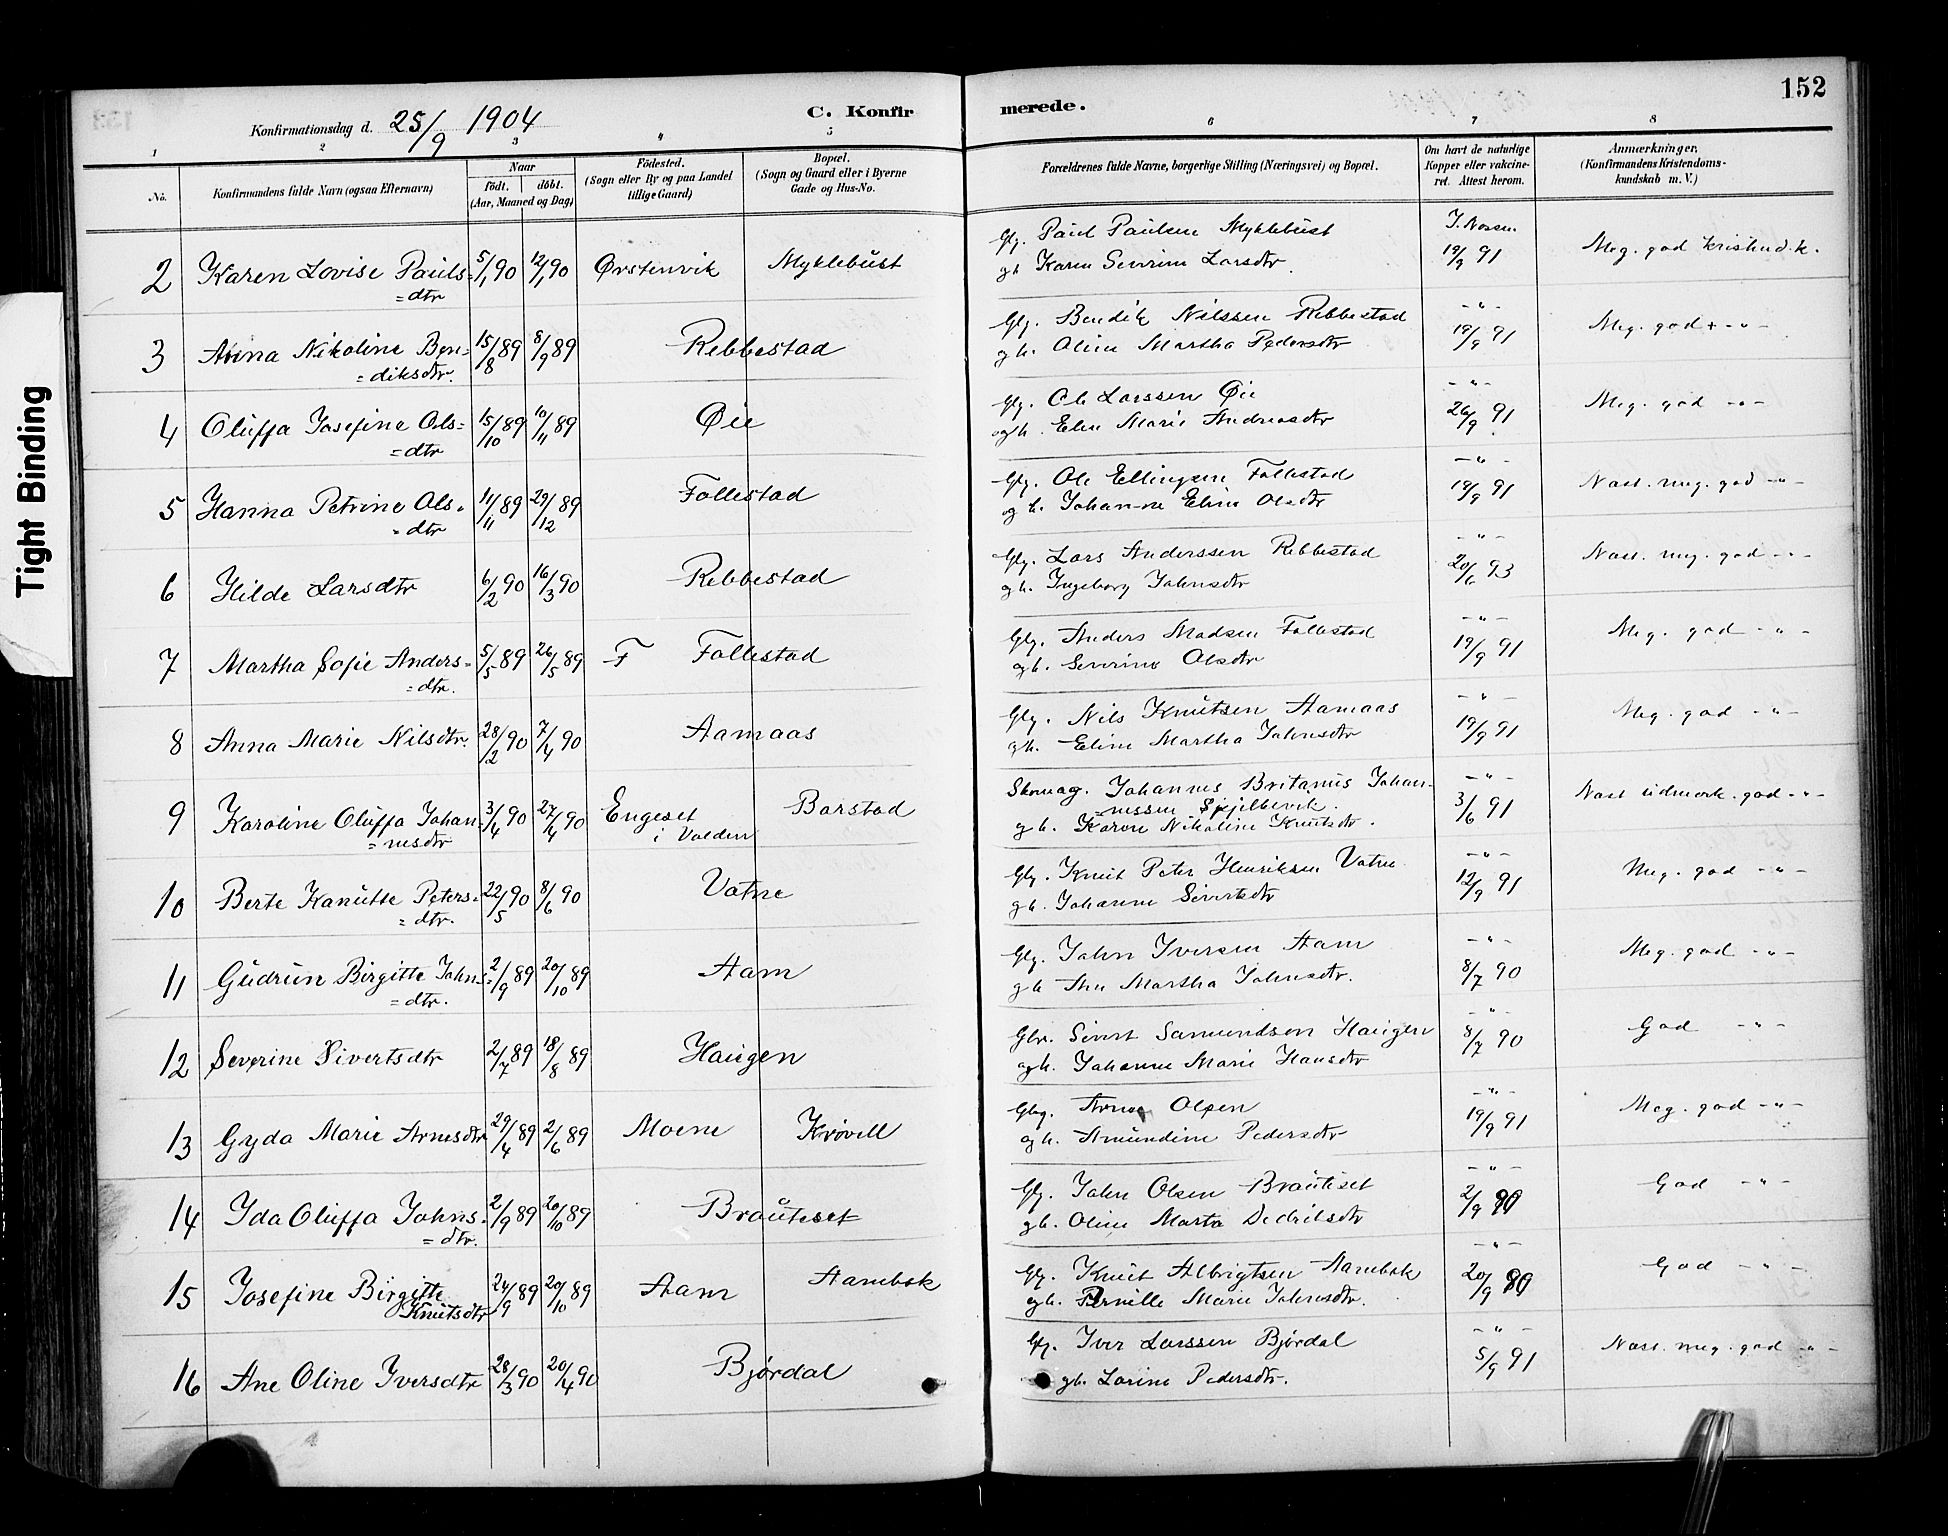 152
Konfirmationsdag d. 25/9 1904
C. Konfir
merede.
1 2 3 4 5 6 7 8
No.
Konfirmandens fulde Navn (ogsaa Efternavn)
Naar
født. døbt.
(Aar, Maaned og Dag)
Fødested.
(Sogn eller By og paa Landet
tillige Gaard)
Bopæl.
(Sogn og Gaard eller i Byerne
Gade og Hus-No.
Forældrenes fulde Navne, borgerlige Stilling (Næringsvei) og Bopæl.
Om havt de naturlige
Kopper eller vakcine-
ret. Attest herom.
Anmærkninger,
(Konfirmandens Kristendoms-
kundskab m. V.)
Tight Binding
2 Karen Lovise Pauls= 5/1 90 12/1 90 Ørstenvik Myklebust
=dtr
Gbr. Paul Paulsen Myklebust
gh Karen Severine Larsdtr.
19/9 91 Meg. god kristend.k.
3 Anna Nikoline Ben= 15/8 89 8/9 89 Rebbestad
=diksdtr.
Gbr. Bendik Nilssen Rebbestad
gh. Oline Martha Pedersdtr
-"- 19/9 91 Meg. god + -"-
4 Oluffa Josefine Ols= 15/10 89 10/11 89 Øie
=dtr
Gbr. Ole Larssen Øie
ogh. Eline Marie Andreasdtr
-"- 26/9 91 Meg. god -"-
5 Hanna Petrine Ols= 11/11 89 29/12 89 Follestad
=dtr
Gbr. Ole Ellingsen Follestad
og h. Johanne Eline Olsdtr
-"- 19/9 91 Næst. meg. god -"-
6 Hilde Larsdtr 6/2 90 16/3 90 Rebbestad
Gbr. Lars Anderssen Rebbestad
gh. Ingeborg Johnsdtr
-"- 20/6 93 Næst. meg. god -"-
7 Martha Sofie Anders= 5/5 89 26/5 89 F Follestad
=dtr.
Gbr. Anders Madsen Follestad
gh. Severine Olsdtr
-"- 19/9 91 Meg. god -"-
8 Anna Marie Nilsdtr. 28/2 90 7/4 90 Aamaas
Gbr. Nils Knutsen Aamaas
gh. Eline Martha Johnsdtr
-"- 19/9 91 Meg. god -"-
9 Karoline Oluffa Johan= 3/4 90 27/4 90 Engeset Barstad
=nesdtr i Volden
Skomag. Johannes Britanus Johan-
nessen
gh. Karen Nikoline Knutsdtr.
-"- 3/6 91 Næst udmerk. god -"-
10 Berte Kanutte Peters= 22/5 90 8/6 90 Vatne
=dtr.
Gbr. Knut Peter Henriksen Vatne
gh. Johanne Sivertsdtr
-"- 12/9 91 Meg. god -"-
11 Gudrun Birgitte John= 2/9 89 20/10 89 Aam
=dtr.
Gbr. John Iversen Aam
gh Ane Martha Johnsdtr.
-"- 8/7 90 Meg. god -"-
12 Severine Sivertsdtr 2/7 89 18/8 89 Haugen
Gbr. Sivert Samundsen Haugen
ogh. Johanne Marie Hansdtr
-"- 8/7 90 God -"-
13 Gyda Marie Arnesdtr 29/4 89 2/6 89 Moene Krøvell
Gbr. Arne Olsen
og h. Amundine Pedersdtr
-"- 19/9 91 Meg. god -"-
14 Ida Oluffa Johns= 2/9 89 20/10 89 Brauteset
=dtr.
Gbr. John Olsen Brauteset
gh. Oline Marta Didriksdtr
-"- 2/9 90 God -"-
15 Josefine Birgitte 24/9 89 20/10 89 Aam Aambak
Knutsdtr
Gbr. Knut Albrigtsen Aambak
ogh. Pernille Marie Johnsdtr.
-"- 20/9 90 God -"-
16 Ane Oline Iversdtr 28/3 90 20/4 90 Bjørdal
Gbr. Iver Larssen Bjørdal
gh. Lorine Pedersdtr.
-"- 5/9 91 Næst. meg. god -"-